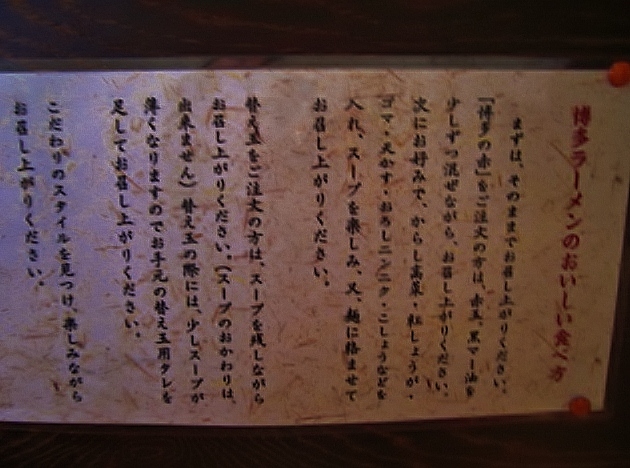 博多ラーメンのおいしい食べ方
まずは、そのままでお召し上がりください。
「博多の赤」をご注文の方は、赤玉、黒マー油を
少しずつ混ぜながら、お召し上がりください。
次にお好みで、からし高菜・紅しょうが・
ゴマ・天かす・おろしニンニク・こしょうなどを
入れ、スープを楽しみ、又、麺に絡ませて
お召し上がりください。
替え玉をご注文の方は、スープを残しながら
お召し上がりください。(スープのおかわりは、
出来ません)替え玉の際には、少しスープが
薄くなりますのでお手元の替え玉用タレを
足してお召し上がりください。
こだわりのスタイルを見つけ、楽しみながら
お召し上がりください。